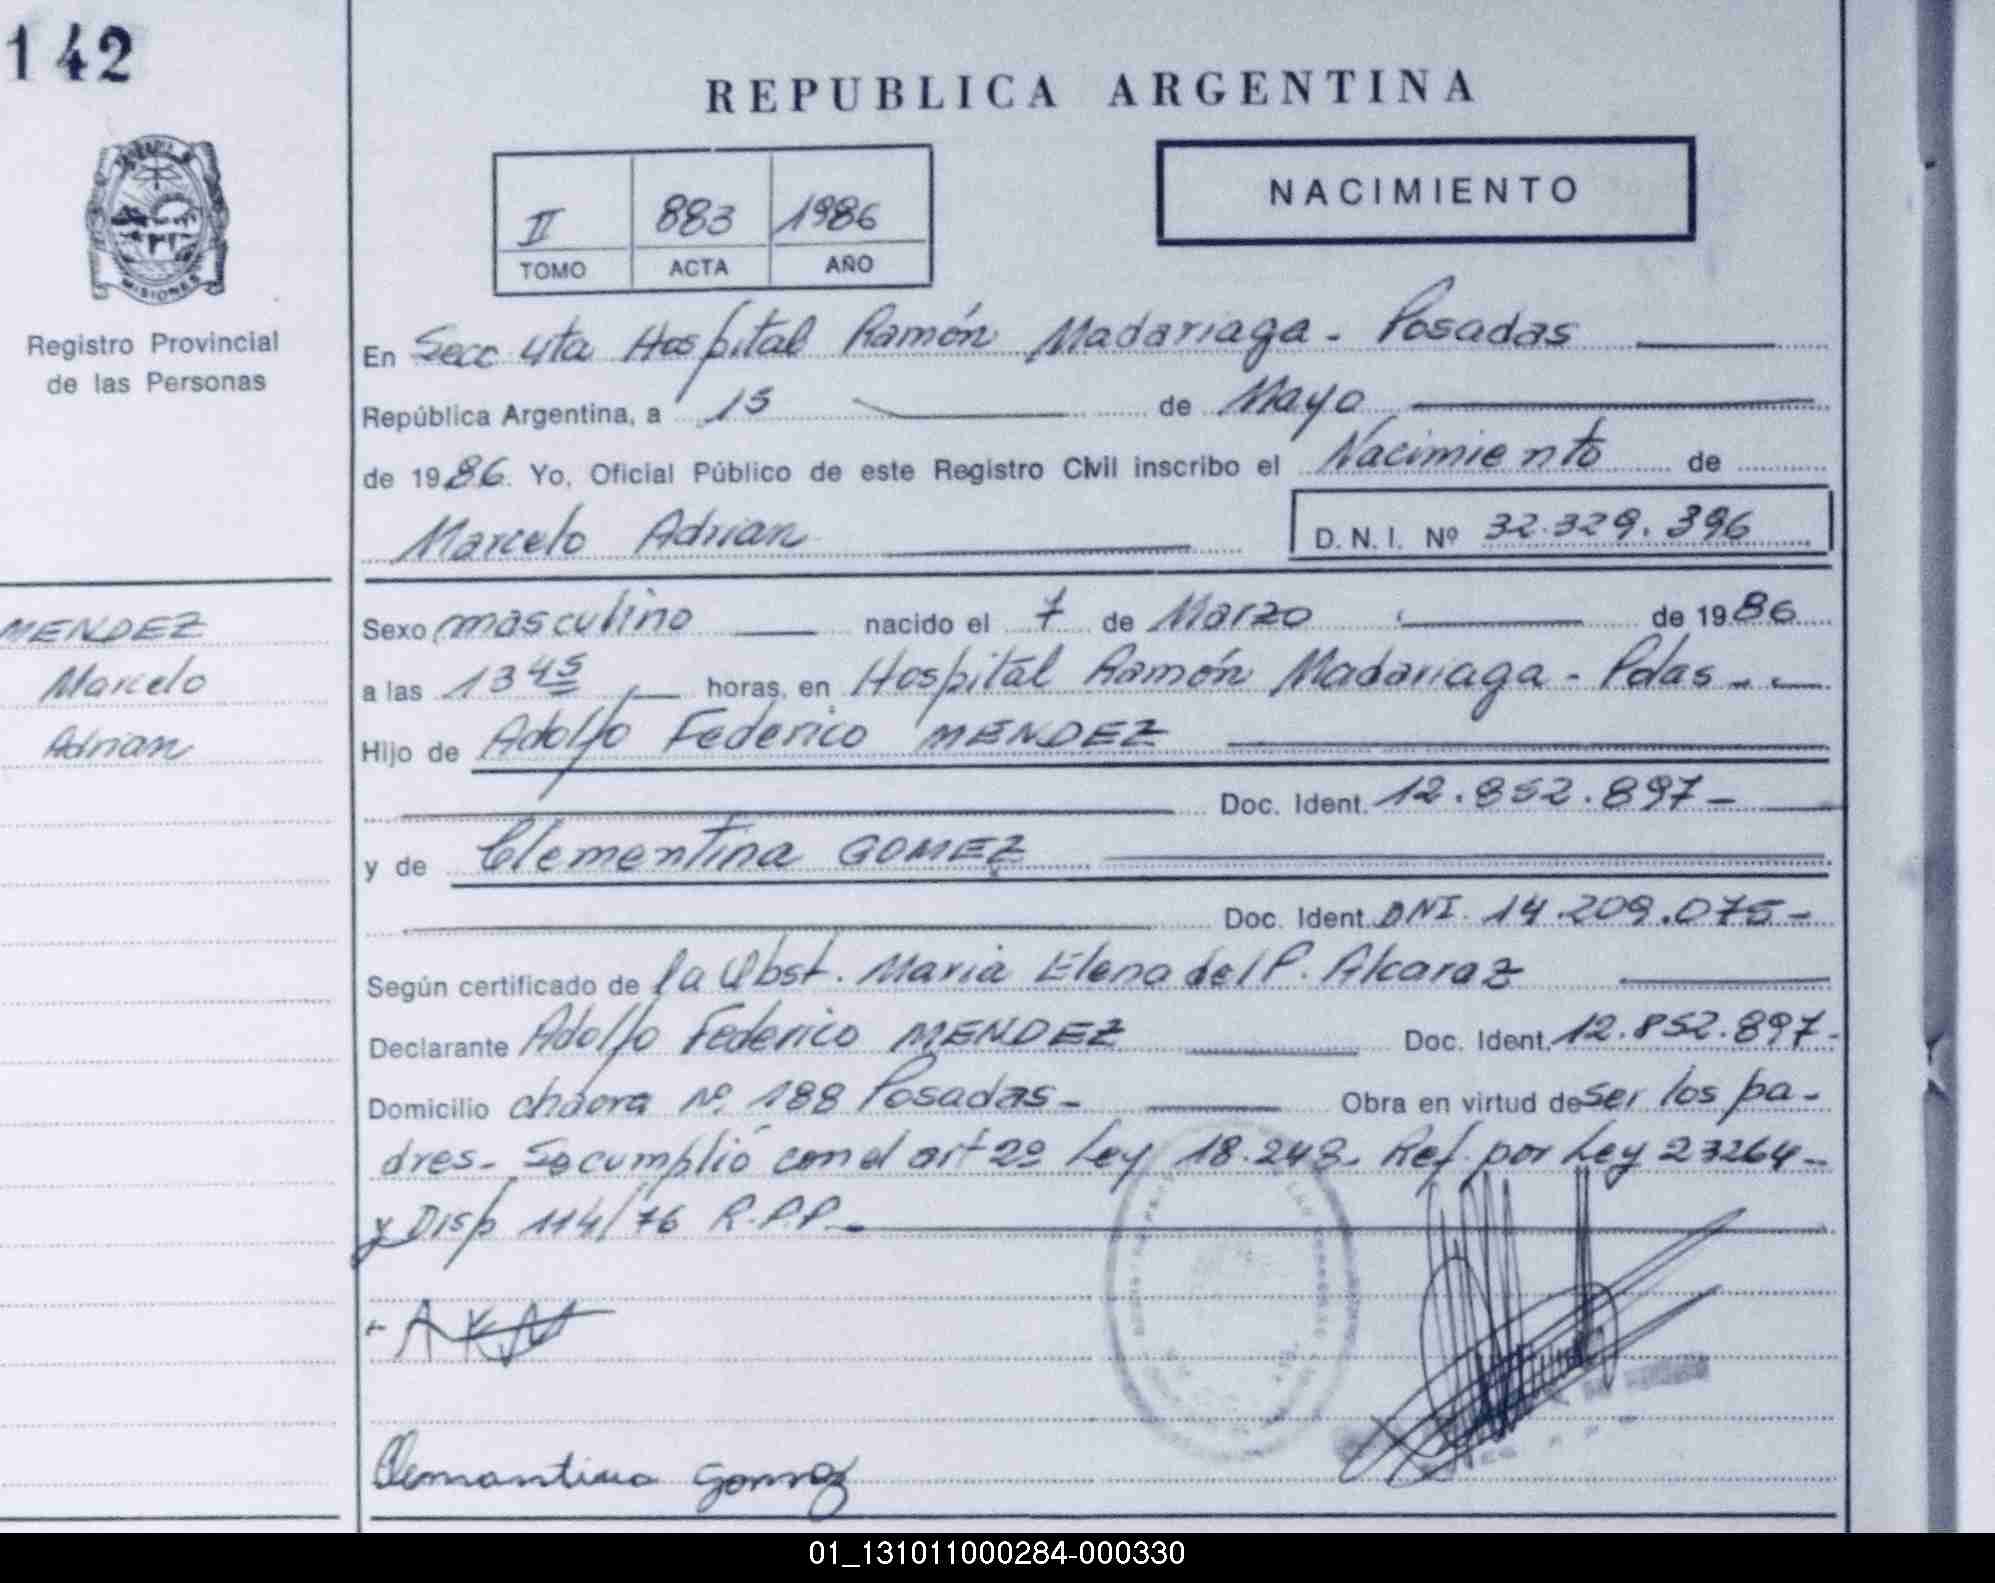 142
REPUBLICA ARGENTINA
NACIMIENTO
II 883 1986
TOMO ACTA AÑO
MISIONES
Registro Provincial
de las Personas
En Secc 4ta Hospital Ramón Madariaga - Posadas
República Argentina, a 15 de Mayo
de 1986. Yo, Oficial Público de este Registro Civil inscribo el Nacimiento de
Marcelo Adrian D. N. I. Nº 32.329.396
MENDEZ
Marcelo
Adrian
Sexo masculino nacido el 7 de Marzo de 1986
a las 13 45 horas, en Hospital Ramón Madariaga - Pdas -
Hijo de Adolfo Federico MENDEZ
Doc. Ident. 12.852.897-
y de Clementina GOMEZ
Doc. Ident. DNI. 14.209.075-
Según certificado de la Obst. Maria Elena del P. Alcaraz
Declarante Adolfo Federico MENDEZ Doc. Ident. 12.852.897-
Domicilio chacra Nº 188 Posadas - Obra en virtud de ser los pa-
dres - Se cumplió con el art 2º Ley 18.248. Ref. por Ley 23264-
y Disp 114/76 R.P.P.-
Clemantina Gomez
01_131011000284-000330